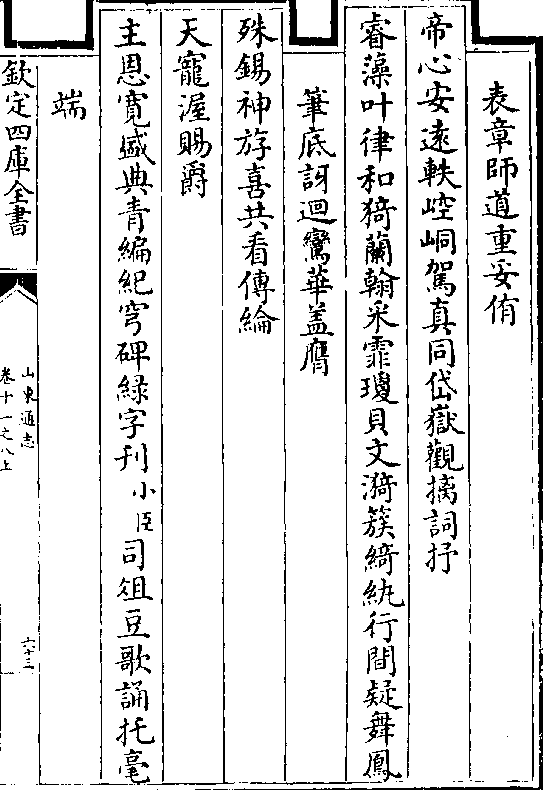 表章師道重妥侑
帝心安遠軼崆峒駕真同岱嶽觀摛詞抒
睿藻叶律和猗蘭翰采霏瓊貝文漪簇綺紈行間疑舞鳳
筆底訝迴鸞華盖膺
殊錫神斿喜共看傳綸
天寵渥賜爵
主恩寬盛典青編紀穹碑綠字刋小臣司俎豆歌誦托毫
端
欽定四庫全書
山東通志
卷十一之八上
六十三